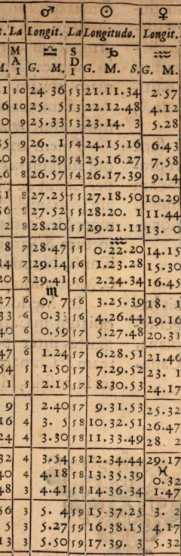 ♂ ☉ ♀
La Longit. La Longitudo. Longit.
M A I ♎ S D I ♑ ♒
M. G. M. G. M. S. G. M.
10 24 36 53 21.11.34 2.57
10 25. 5 53 22.12.48 4.12
9 25.33 53 23.14. 3 5.28
9 26. 1 54 24.15.16 6.43
9 26.29 54 25.16.27 7.58
8 26.57 54 26.17.39 9.14
8 27.25 55 27.18.50 10.29
8 27.52 55 28.20. 1 11.44
8 28.20 55 29.21.11 13. 0
♒
7 28.47 55 0.22.20 14.15
7 29.14 56 1.23.28 15.30
7 29.41 56 2.24.34 16.45
♏
6 0. 7 56 3.25.39 18. 1
6 0.33 56 4.26.44 19.16
6 0.59 57 5.27.48 20.31
6 1.24 57 6.28.51 21.46
5 1.50 57 7.29.52 23. 1
5 2.15 57 8.30.53 24.17
5 2.40 57 9.31.53 25.32
4 3. 5 58 10.32.51 26.47
4 3.30 58 11.33.49 28. 2
4 3.54 58 12.34.44 29.17
♓
4.18 58 13.35.39 0.32
3 4.41 58 14.36.34 1.47
3 5. 4 59 15.37.25 3. 2
3 5.27 59 16.38.15 4.17
3 5.50 59 17.39. 3 5.32